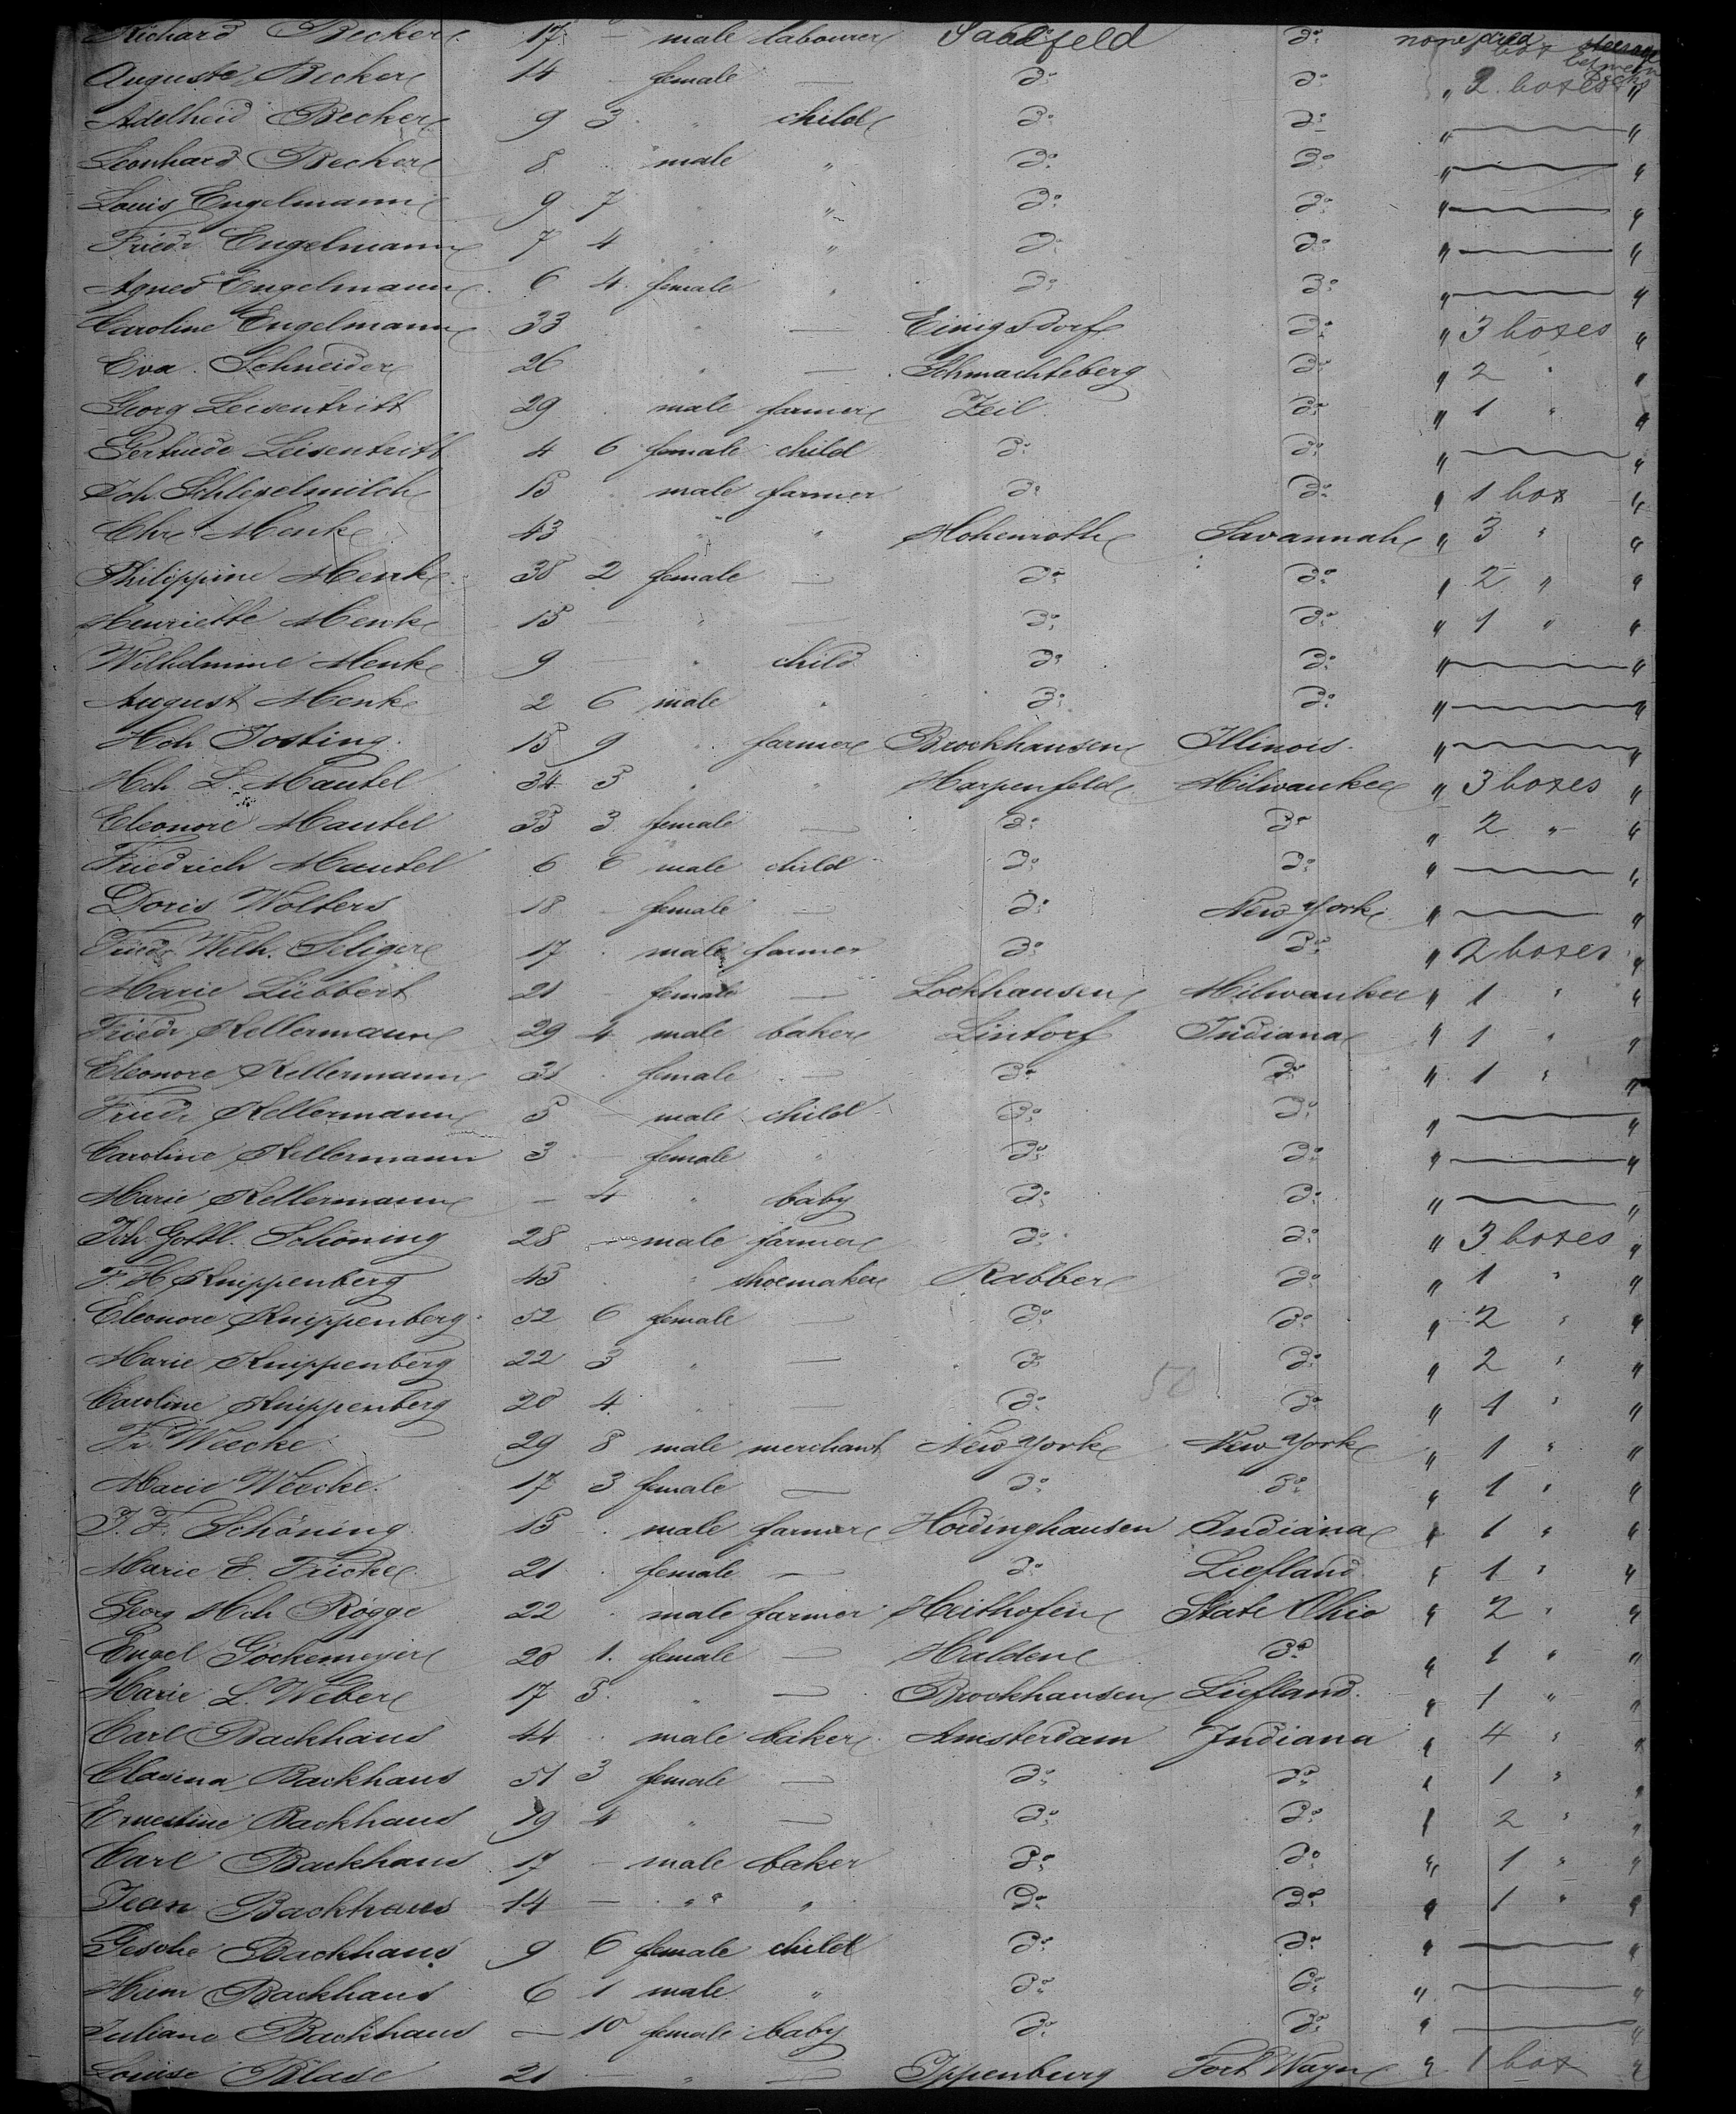 Richard Becker 17 - male labourer Saalfeld do none died
Auguste Becker 14 - female — do do " 2 boxes "
Adelheid Becker 9 3 " child do do " — "
Leonhard Becker 8 male " do do " — "
Louis Engelmann 9 7 " " do do " — "
Friedr Engelmann 7 4 " " do do " — "
Agnes Engelmann 6 4 female " do do " — "
Caroline Engelmann 33 " — Einigsdorf do " 3 boxes "
Eva Schneider 26 " — Schmachteberg do " 2 " "
Georg Leisentritt 29 male farmer Zeil do " 1 " "
Gertrude Leisentritt 4 6 female child do do " — "
Joh. Schlegelmilch 15 male farmer do do " 1 box "
Chr. Menke 43 " " Hohenroth Savannah " 3 " "
Philippine Menke 38 2 female — do do " 2 " "
Henriette Menke 15 — " — do do " 1 " "
Wilhelmine Menke 9 " child do do " — "
August Menke 2 6 male " do do " — "
Hch Josting 15 9 " farmer Brockhausen Illinois " — "
Hch L. Mantel 34 3 " " Harpenfeld Milwaukee " 3 boxes "
Eleonore Mantel 35 3 female — do do " 2 " "
Friedrich Mantel 6 6 male child do do " — "
Doris Wolters 18 - female — do New York " — "
Friedr Wilh. Seliger 17 - male farmer do do " 2 boxes "
Marie Lübbert 21 - female — Lockhausen Milwaukee " 1 " "
Friedr Kellermann 29 4 male baker Lintorf Indiana " 1 " "
Eleonore Kellermann 31 - female — do do " 1 " "
Friedr Kellermann 5 - male child do do " — "
Caroline Kellermann 3 - female " do do " — "
Marie Kellermann — 4 " baby do do " — "
Joh. Gottl. Schöning 28 - male farmer do do " 3 boxes "
F. H. Knippenberg 45 " shoemaker Rabber do " 1 " "
Eleonore Knippenberg 52 6 female — do do " 2 " "
Marie Knippenberg 22 3 " — do do " 2 " "
Caroline Knippenberg 20 4 " do do " 1 " "
Fr. Weecke 29 8 male merchant New York New York " 1 " "
Marie Weecke 17 3 female — do do " 1 " "
J. F. Schöning 15 - male farmer Hördinghausen Indiana " 1 " "
Marie E. Fricke 21 - female — do Liefland " 1 " "
Georg Hch Rögge 22 - male farmer Heithöfen State Ohio " 2 " "
Engel Gockemeyer 20 1 female — Halden do " 1 " "
Marie L. Weber 17 5 " — Brockhausen Liefland " 1 " "
Carl Backhaus 44 - male baker Amsterdam Indiana " 4 " "
Clasina Backhaus 51 3 female — do do " 1 " "
Ernestine Backhaus 19 4 " — do do " 2 " "
Carl Backhaus 17 - male baker do do " 1 " "
Jean Backhaus 14 — " " do do " 1 " "
Gesche Backhaus 9 6 female child do do " — "
Backhaus 6 1 male " do do " — "
Juliane Backhaus — 10 female baby do do " — "
Louise Blase 21 — " — Ippenburg Fort Wayne " 1 box "